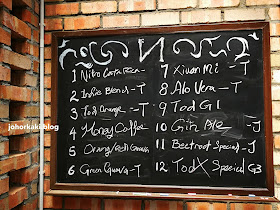 1 Nitro Costa Rica -
2 India Blend - T
3 Tod Orange -- T
4 Honey Coffee
5 Orange/ Guava
6 Green Guava - T
7 Xiuan Mi - T
8 Alo Vera - T
9 Tod G1
10 Gin - J
11 Beetroot Special - J
12 TodX Special G3
johorkaki.blog